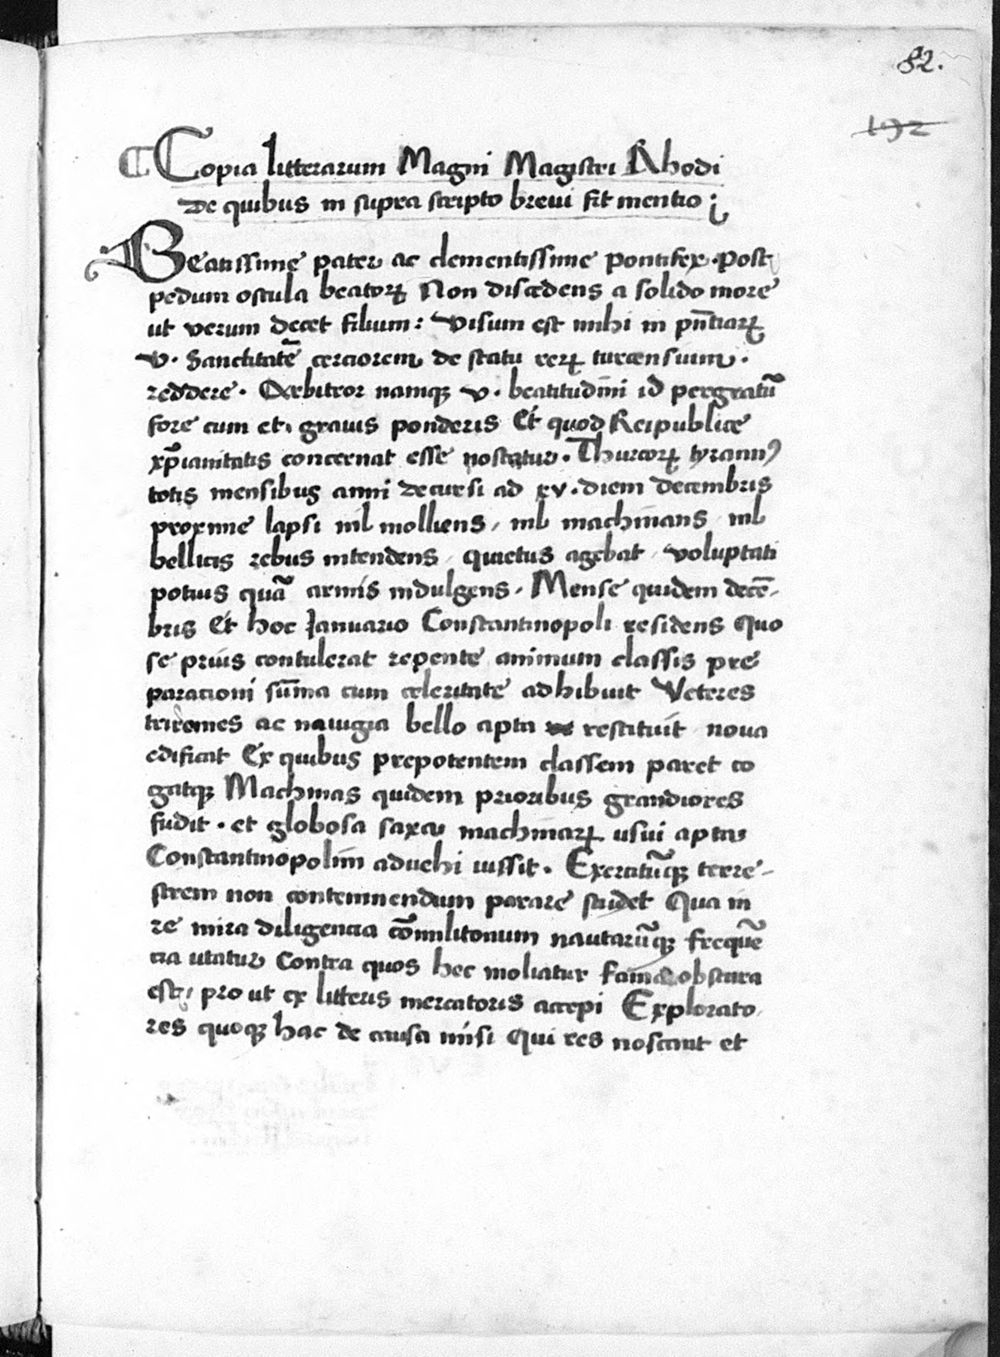 82.
192
Copia litterarum Magni Magistri Rhodi
De quibus in supra scripto brevi fit mentio ;
Beatissime pater ac clementissime pontifex . post
pedum oscula beatorꝝ Non discedens a solido more
ut verum decet filium : visum est mihi in pn̄tiarꝝ
v . Sanctitatē cerciorem de statu rerꝝ turcensium .
reddere . Arbitror namqꝫ v . beatitudini id pergratū
fore cum et gravis ponderis Et quod Reipublice
xp̄ianitatis concernat esse noscatur . Thurcorꝝ tyrannꝰ
totis mensibus anni decursi ad xv . diem decembris
proxime lapsi nil molliens , nil machinans nil
bellicis rebus intendens , quietus agebat , voluptati
potius quā armis indulgens , Mense quidem decē-
bris Et hoc Januario Constantinopoli residens quo
se prius contulerat repente animum classis pre
paracioni sūma cum celeritate adhibuit Veteres
triremes ac navigia bello apta restituit nova
edificat Ex quibus prepotentem classem paret co
gatqꝫ Machinas quidem prioribus grandiores
fudit . et globosa saxa machinarꝝ usui apta
Constantinopolim advehi iussit . Exercitūqꝫ terre-
strem non contemnendum parare studet Qua in
re mira diligencia cōmilitonum nautarūqꝫ frequē
cia utatur Contra quos hec moliatur fama obscura
est , pro ut ex litteris mercatoris accepi Explorato
res quoqꝫ hac de causa misi Qui res noscant et